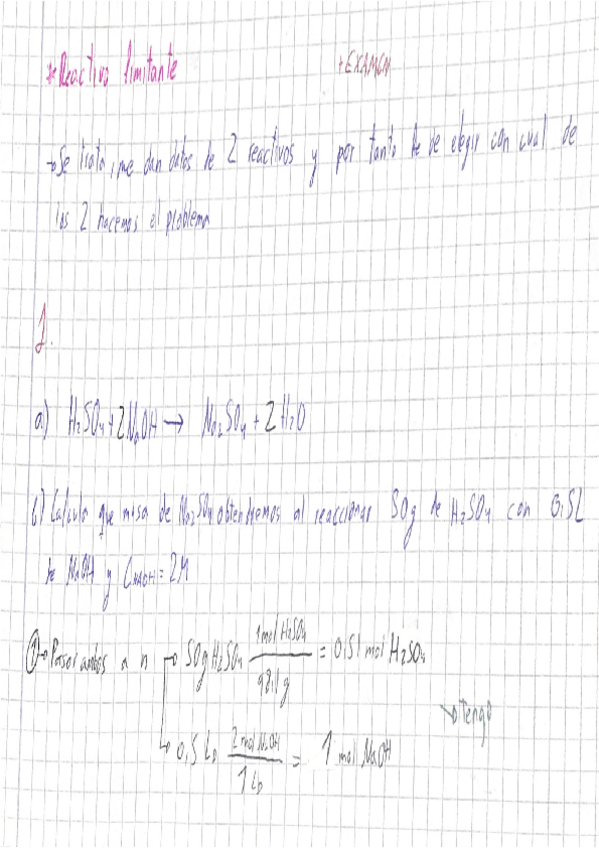 * Reactivo limitante
+EXAMEN
→ Se trata, me dan datos de 2 reactivos y por tanto he de elegir con cual de
los 2 hacemos el problema
1.
a) H₂SO₄ + 2NaOH → Na₂SO₄ + 2 H₂O
b) Calcula que masa de Na₂SO₄ obtendremos al reaccionar 50g de H₂SO₄ con 0,5L
de NaOH y C NAOH = 2M
① → Pasar ambos a n → 50g H₂SO₄ 1 mol H₂SO₄ / 98,1 g = 0,51 mol H₂SO₄
→ Tengo
→ 0,5 L D 2 mol NaOH / 1 L D = 1 mol NaOH